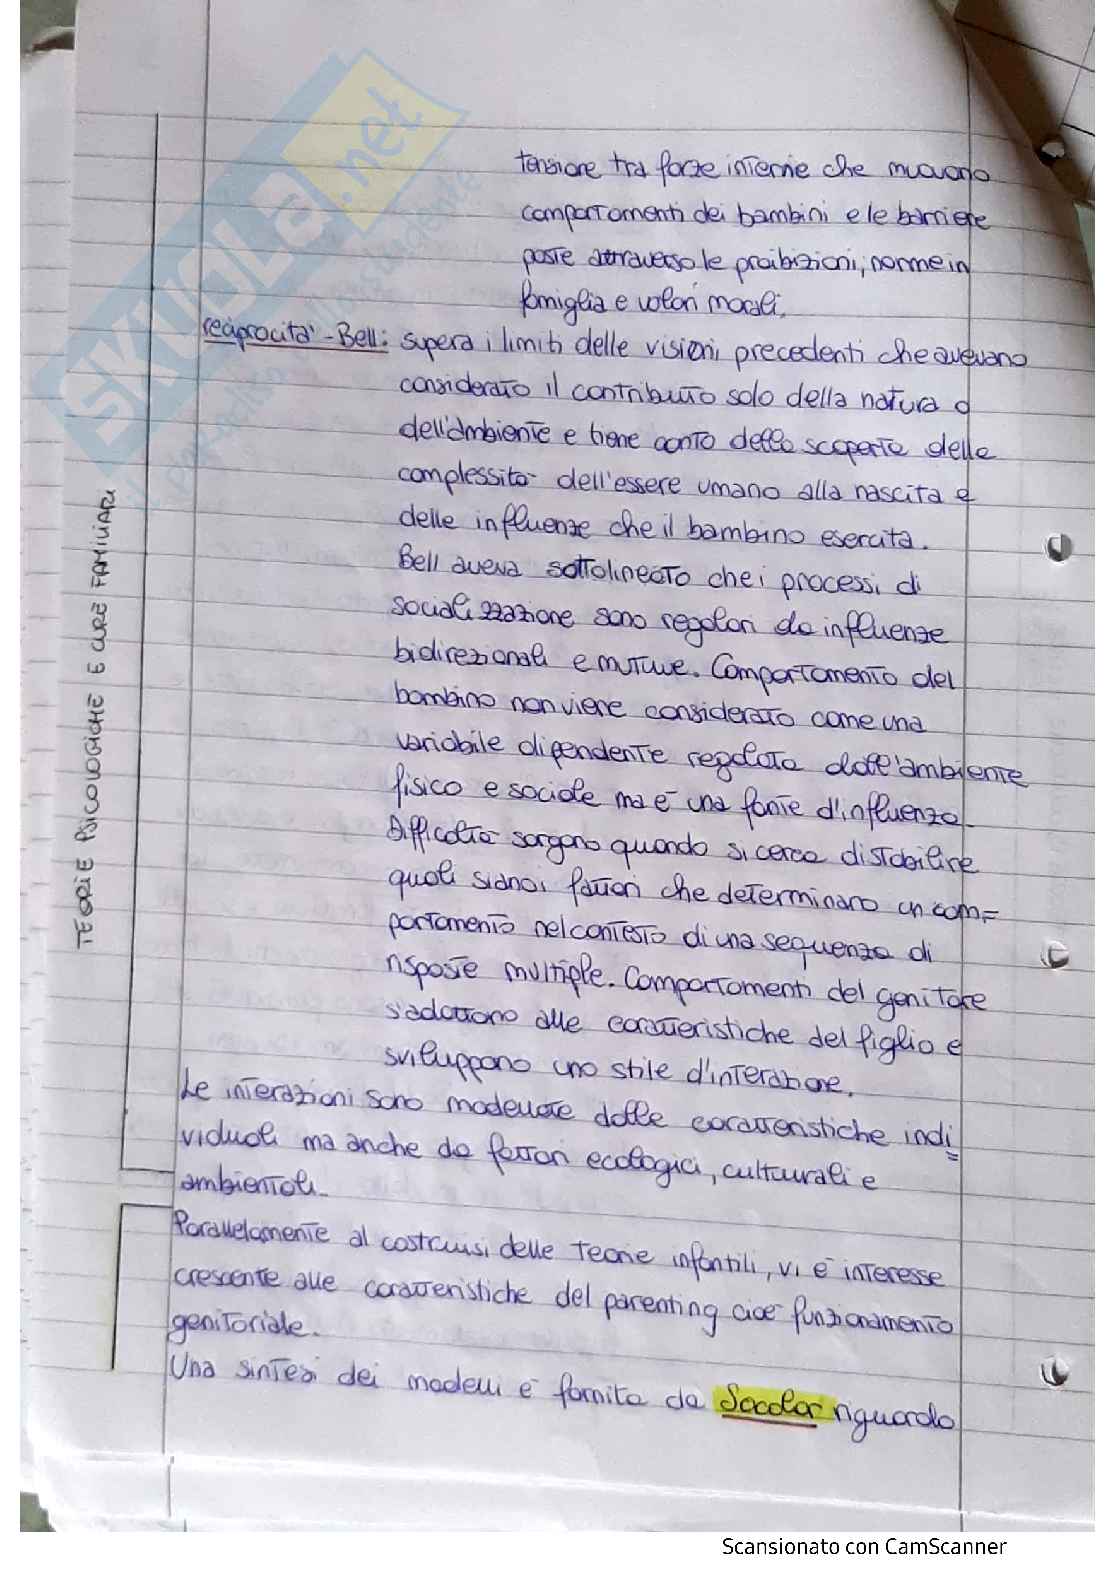 tensione tra forze interne che muovono
comportamenti dei bambini e le barriere
poste attraverso le proibizioni, norme in
famiglia e valori morali.
reciprocità - Bell: supera i limiti delle visioni precedenti che avevano
considerato il contributo solo della natura o
dell'ambiente e tiene conto della scoperta della
complessità dell'essere umano alla nascita e
delle influenze che il bambino esercita.
Bell aveva sottolineato che i processi di
socializzazione sono regolari da influenze
bidirezionali e mutue. Comportamento del
bambino non viene considerato come una
variabile dipendente regolata dall'ambiente
fisico e sociale ma è una fonte d'influenza.
Difficoltà sorgono quando si cerca di stabilire
quali siano i fattori che determinano un com=
portamento nel contesto di una sequenza di
risposte multiple. Comportamenti del genitore
s'adattano alle caratteristiche del figlio e
sviluppano uno stile d'interazione.
Le interazioni sono modellate dalle caratteristiche indi=
viduali ma anche da fattori ecologici, culturali e
ambientali.
Parallelamente al costruirsi delle teorie infantili, vi è interesse
crescente alle caratteristiche del parenting cioè funzionamento
genitoriale.
Una sintesi dei modelli è fornita da Socolar riguardo
TEORIE PSICOLOGICHE E CURE FAMILIARI
SKUOLA.net
Scansionato con CamScanner